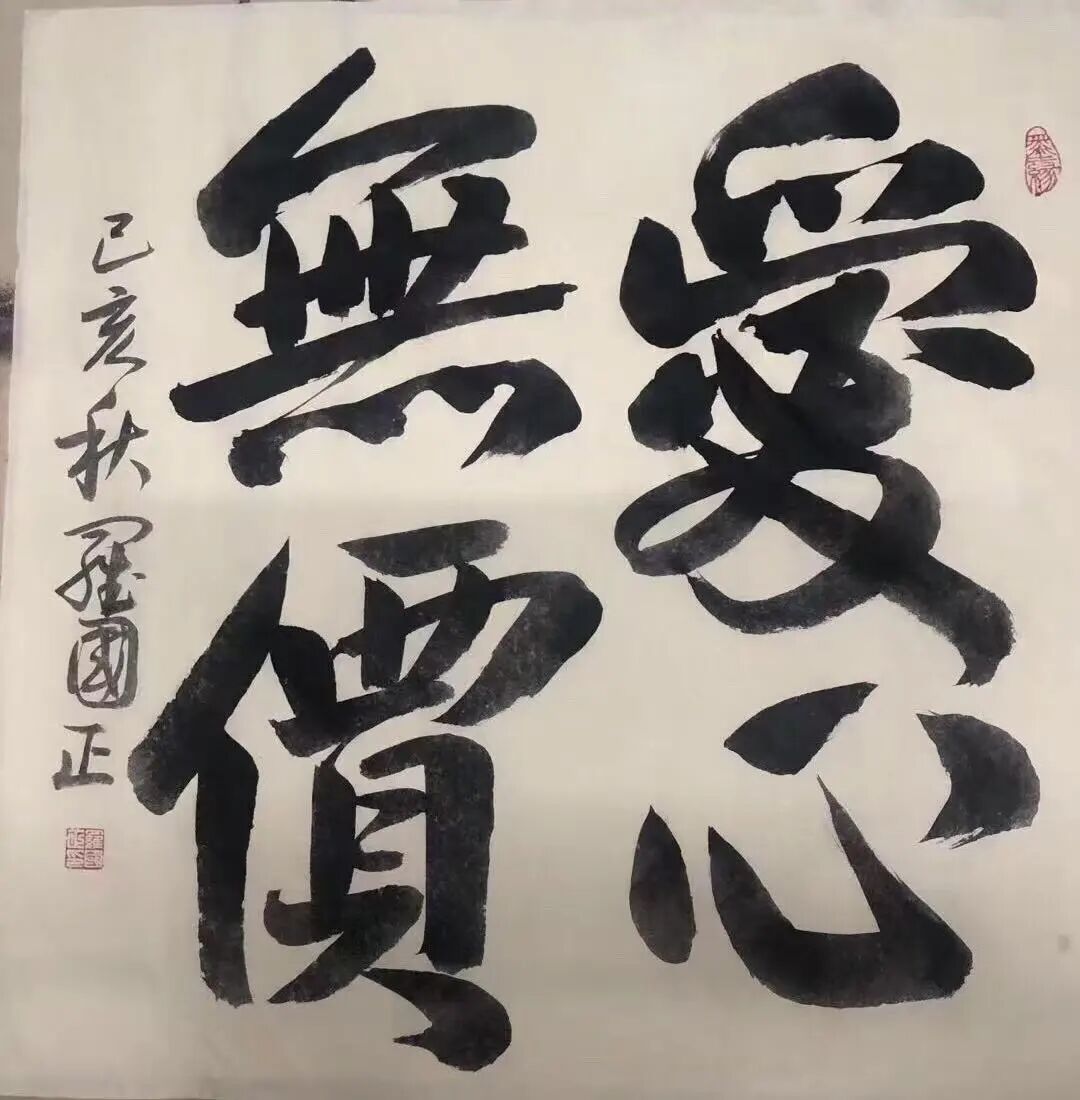 愛心
無價
己亥秋羅國正